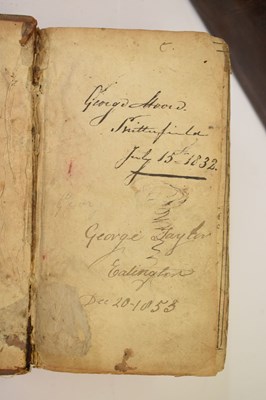 George Moore.
Snitterfield
July 15th 1832.
George Taylor
Eatington
Dec 20-1853